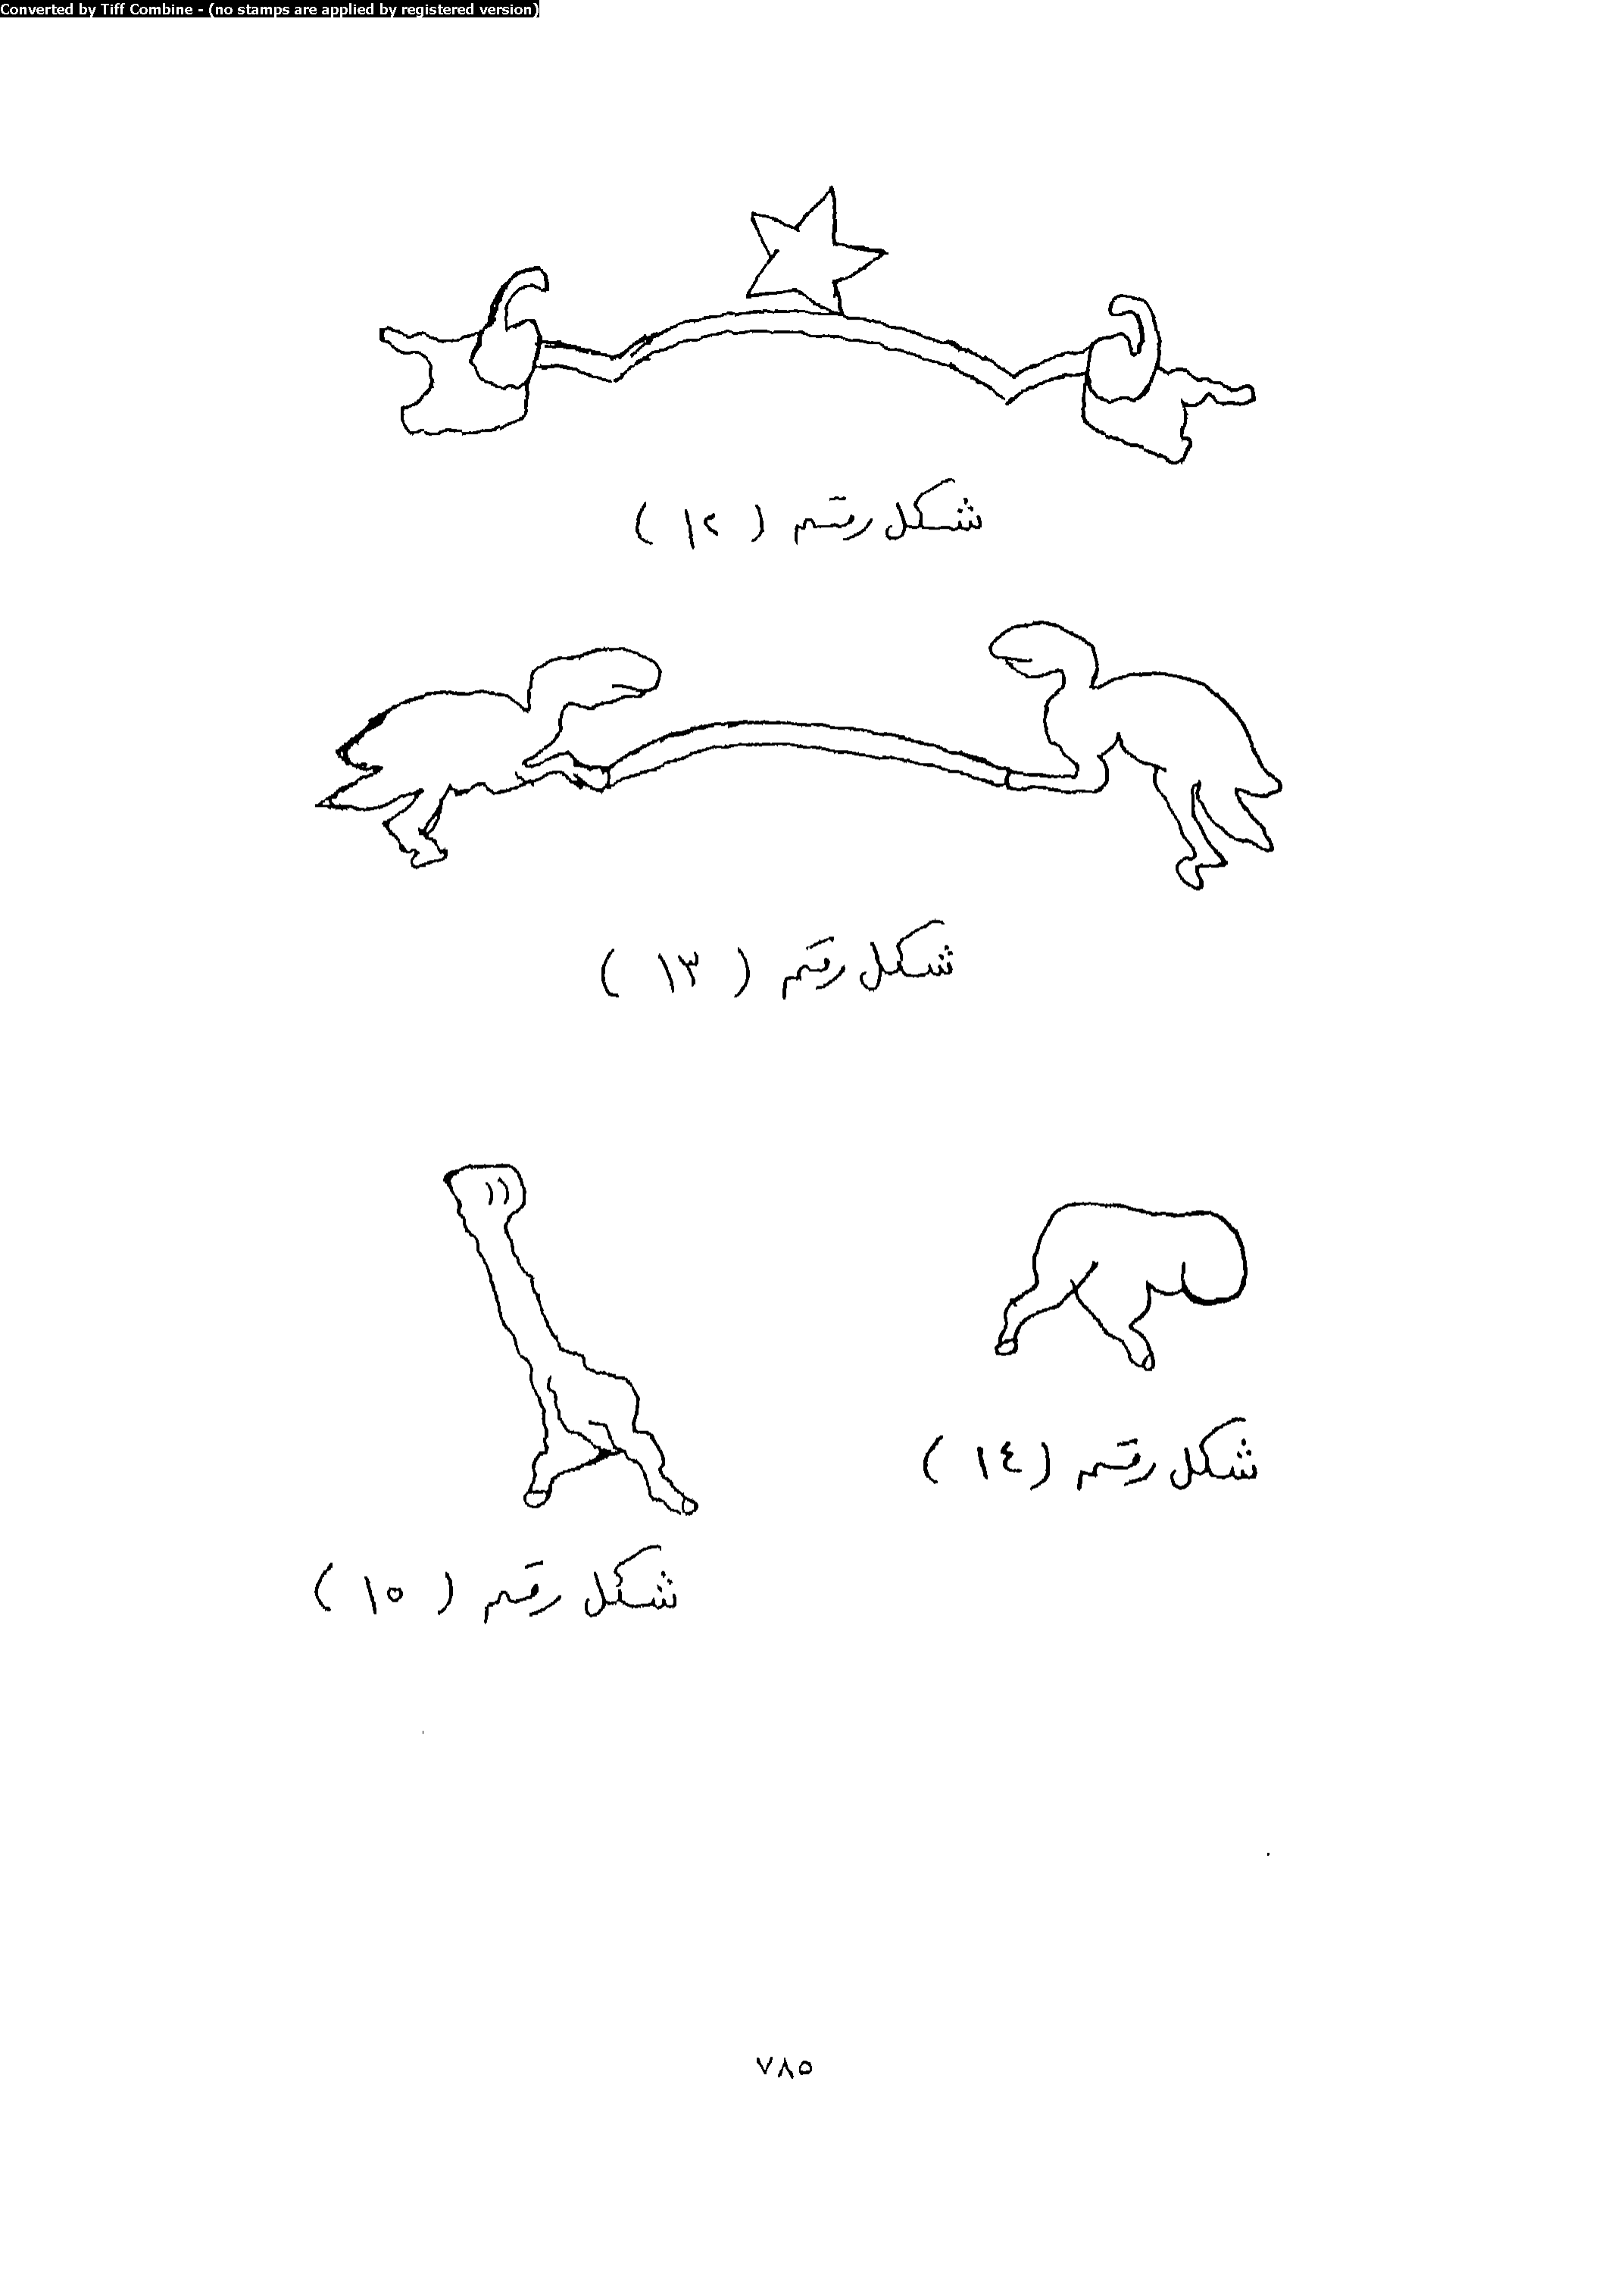 Converted by Tiff Combine - (no stamps are applied by registered version)
شكل رقم ( ١٢ )
شكل رقم ( ١٣ )
شكل رقم ( ١٤ )
شكل رقم ( ١٥ )
٧٨٥